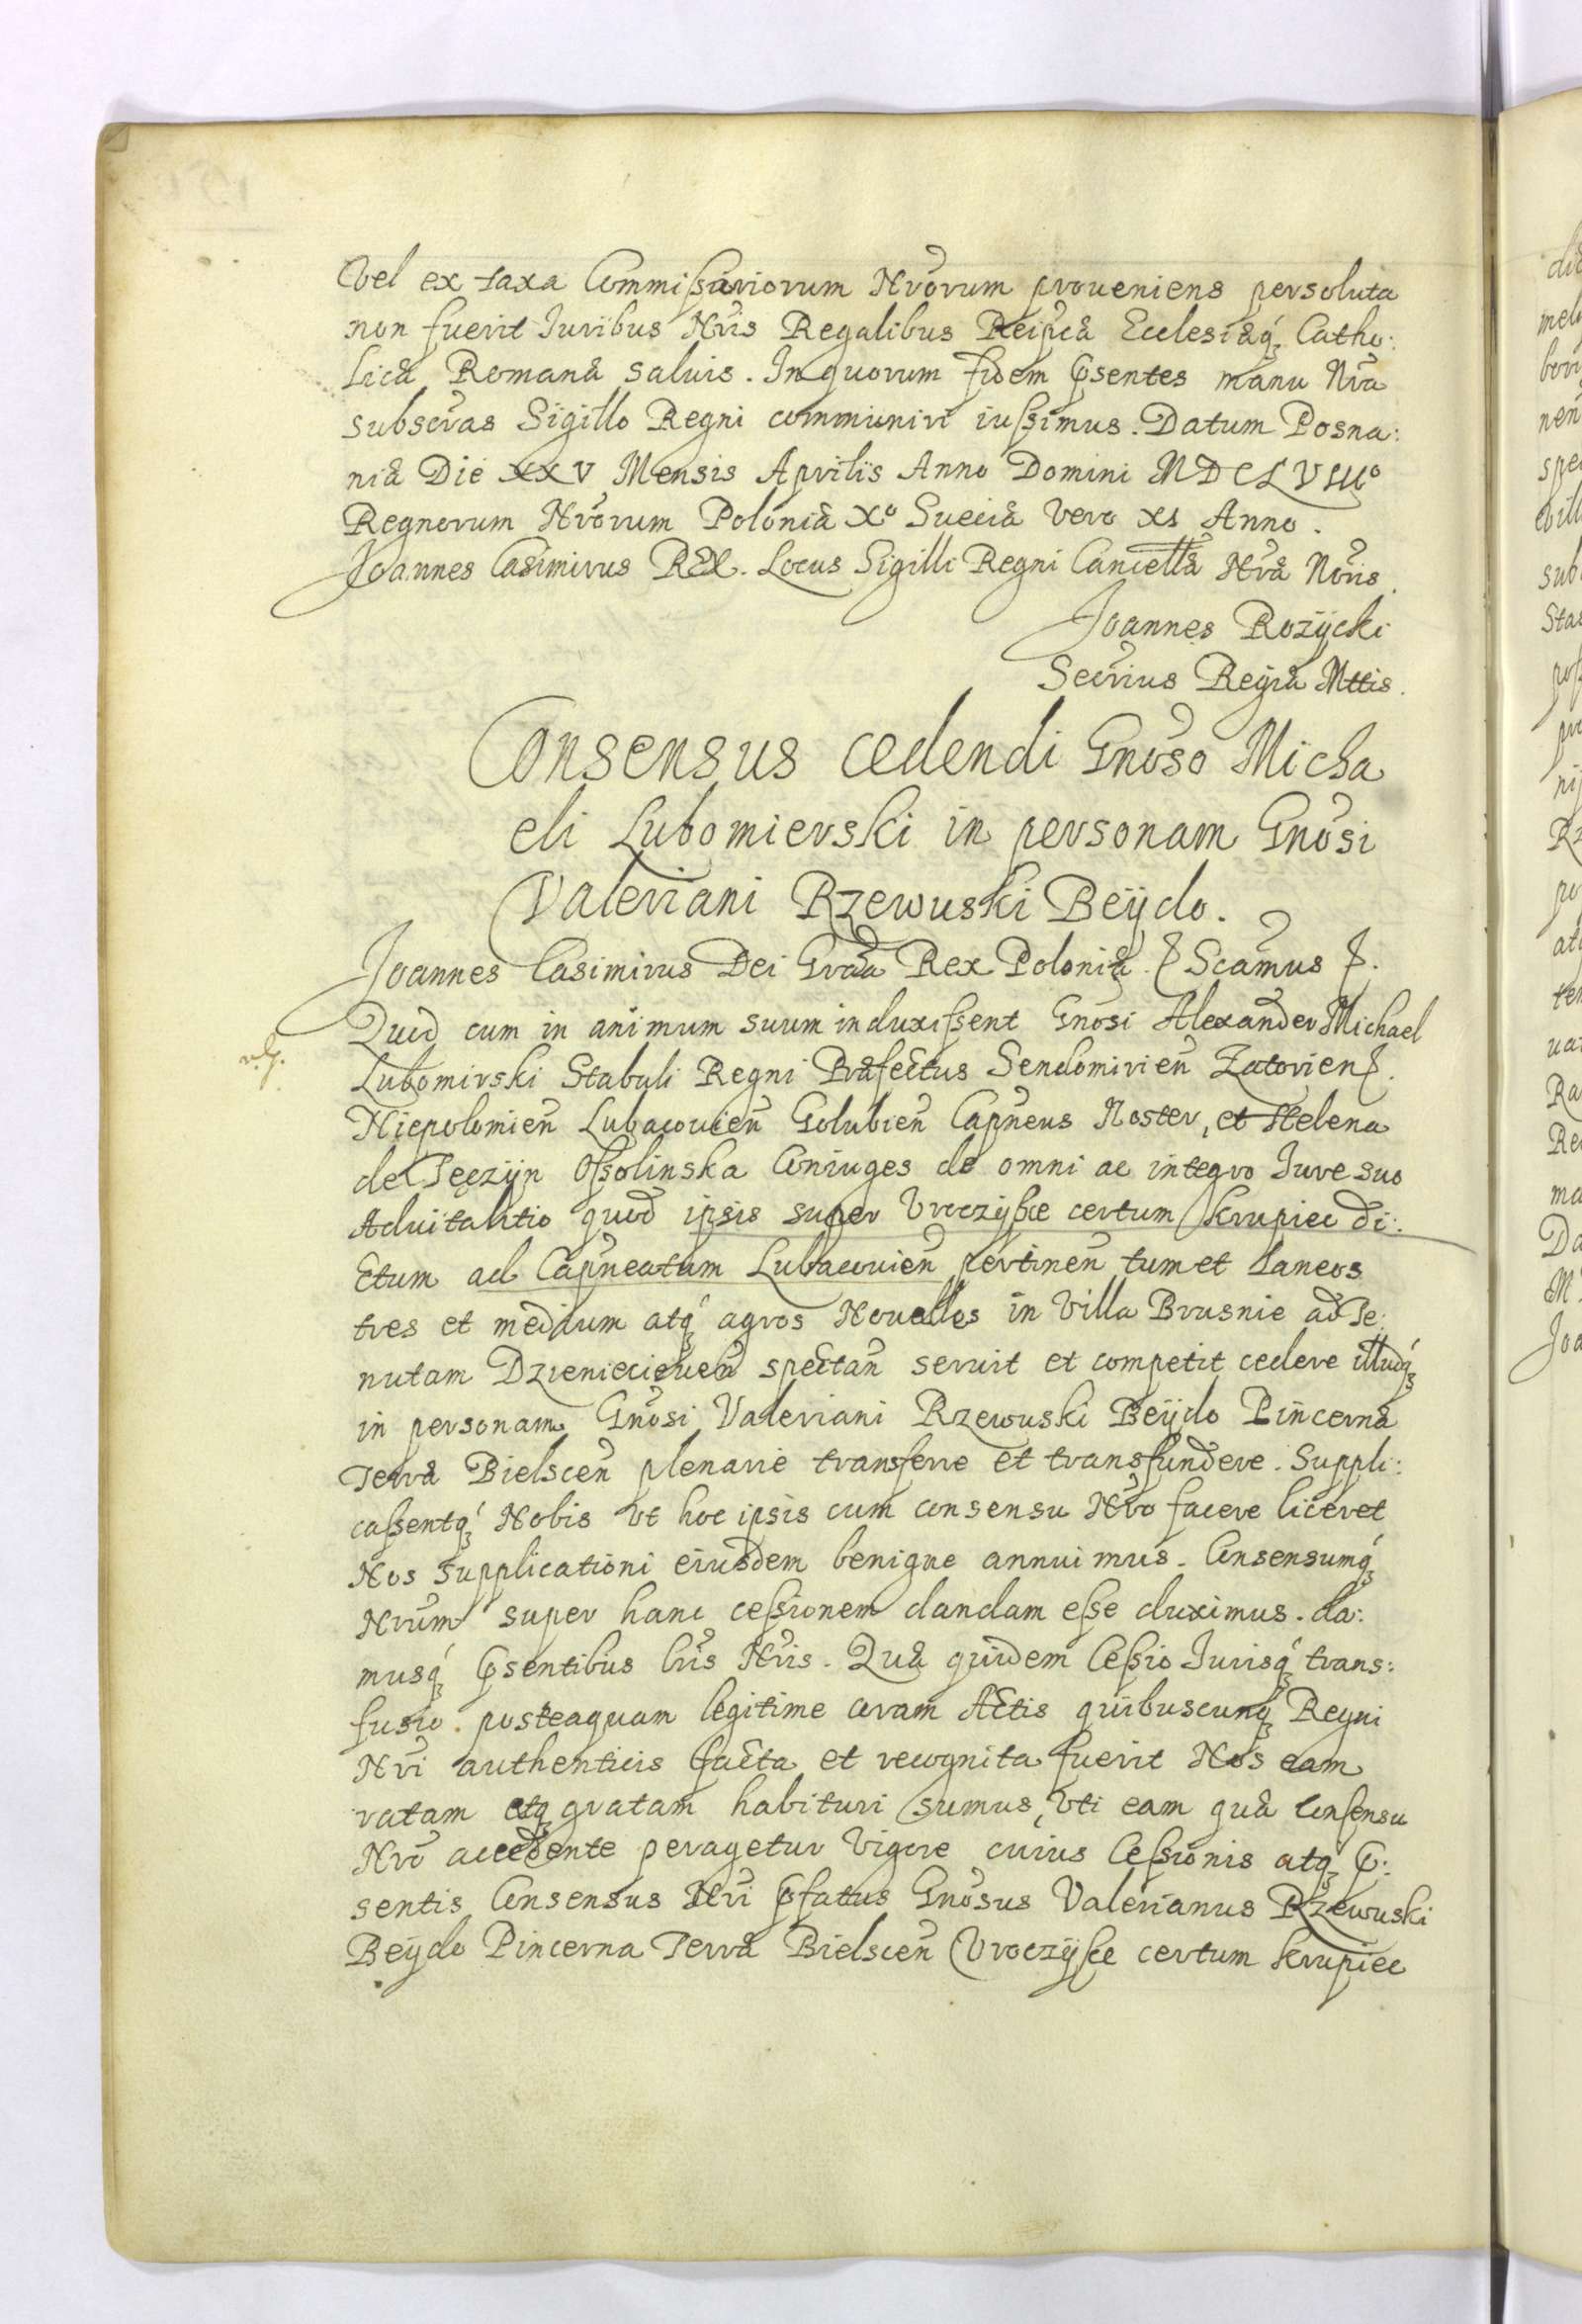 Vel ex taxa Commissariorum Nrorum proueniens persoluta
non fuerit Iuribus Nris Regalibus Reipcæ Ecclesiæq; Catho:
licæ Romanæ saluis. In quorum fidem Psentes manu Nra
subscras Sigillo Regni communiri iussimus. Datum Posna:
niæ Die XXV Mensis Aprilis Anno Domini MDCLVIIIo
Regnorum Nrorum Poloniæ Xo Sueciæ Vero XI Anno.
Joannes Casimirus REX. Locus Sigilli Regni Cancellæ Nræ Noris.
Joannes Rozÿcki
Secrius Regiæ Mttis.
Consensus cedendi Gnoso Micha
eli Lubomierski in personam Gnosi
Valeriani Rzewuski Beÿdo.
Joannes Casimirus Dei Graa Rex Poloniæ. Scamus
Quid cum in animum suum induxissent Gnosi Alexander Michael
Lubomirski Stabuli Regni Præfectus Sendomirien Zatorien
Niepolomien Lubacouien Golubien Capneus Noster, et Helena
de Tęczÿn Ossolinska Coniuges de omni ac integro Iure suo
Aduitalitio quod ipsis super Vroczÿsce certum Krupiec di:
ctum ad Capneatum Lubacouien pertinen tum et Laneos
tres et medium atq; agros Nouelles in Villa Brusnie ad Te:
nutam Dzienieciouen spectan seruit et competit cedere illudq;
in personam Gnosi Valeriani Rzewuski Beÿdo Pincernæ
Terræ Bielscen plenarie transferre et transfundere. Suppli:
cassentq; Nobis vt hoc ipsis cum consensu Nro facere liceret
Nos supplicationi eiusdem benigne annuimus. Consensumq;
Nrum super hanc cessionem dandam esse duximus. da:
musq; Psentibus lris Nris. Quæ quidem Cessio Iurisq; trans:
fusio. posteaquam legitime coram Actis quibuscunq; Regni
Nri authenticis facta et recognita fuerit Nos eam
ratam atq; gratam habituri sumus, Vti eam quæ Consensu
Nro accedente peragetur Vigore cuius Cessionis atq; P:
sentis Consensus Nri Pfatus Gnosus Valerianus Rzewuski
Beÿdo Pincerna Terræ Bielscen Vroczÿsce certum Krupiec